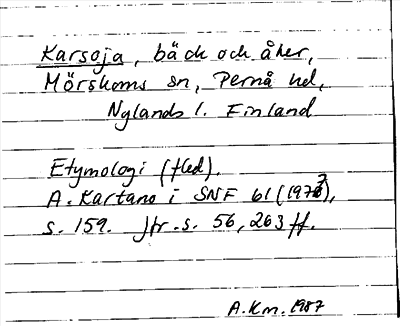 Karsoja, bäck och åker,
Mörskoms sn, Pernå hd,
Nylands l. Finland
Etymologi (fled).
A. Kartano i SNF 61 (1973),
s. 159. Jfr. s. 56, 263 ff.
A.Km. 1987